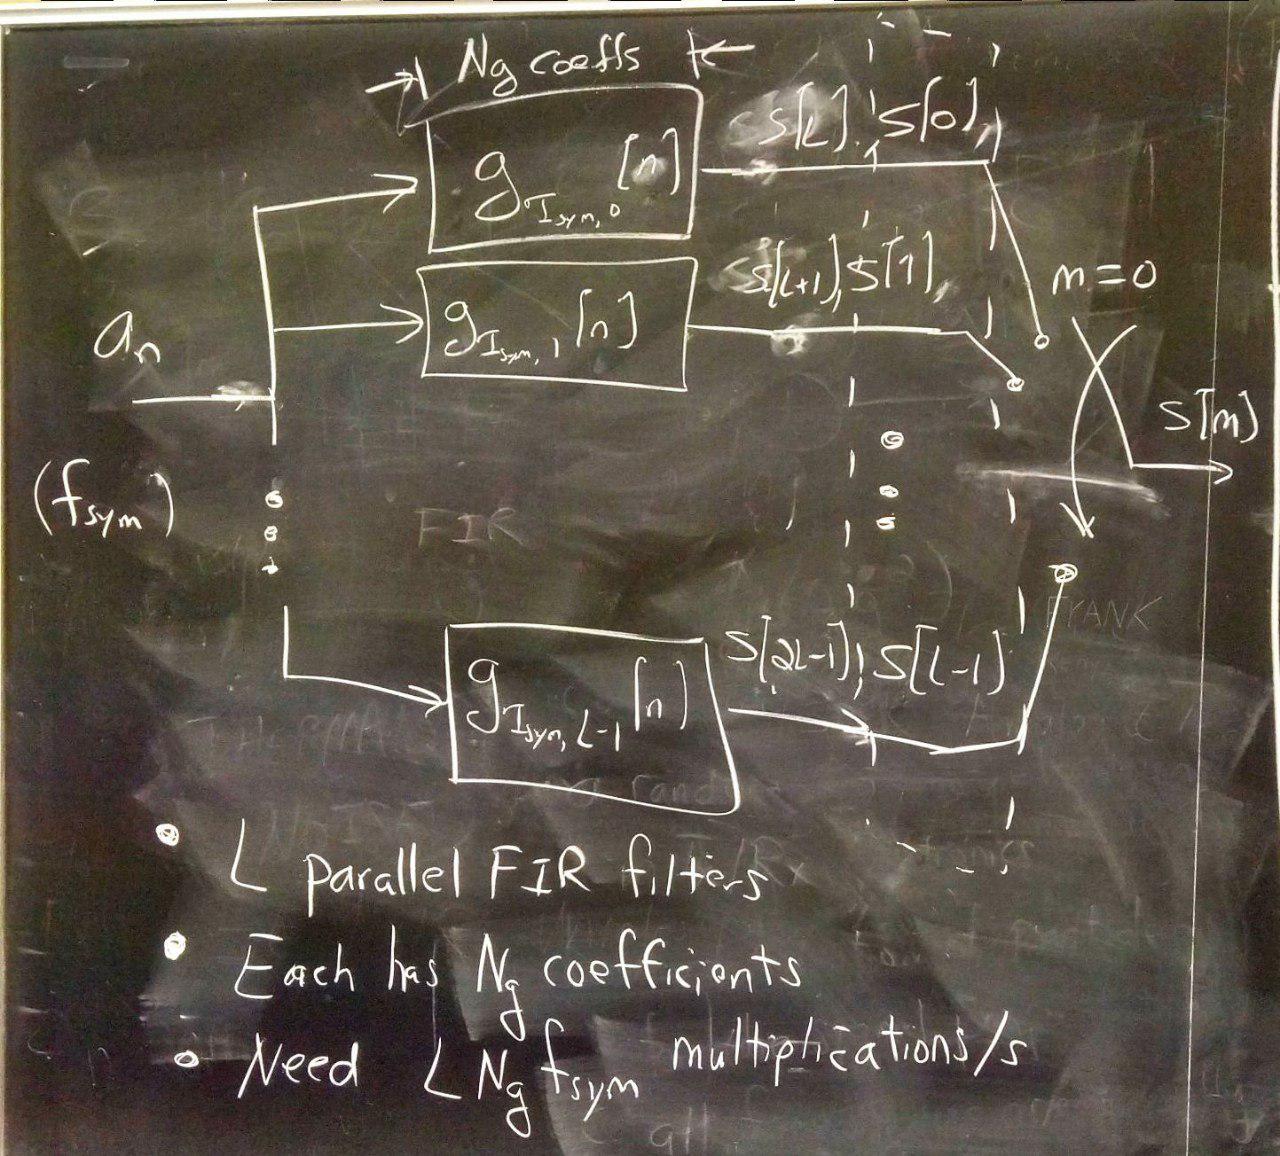 Ng coeffs
g_Tsym,0 [n]
s[L], s[0],
g_Tsym,1 [n]
s[L+1], s[1],
m=0
an
s[m]
(fsym)
FIR
FYANK
g_Tsym,L-1 [n]
s[2L-1], s[L-1]
• L parallel FIR filters
• Each has Ng coefficients
• Need L Ng fsym multiplications/s
all